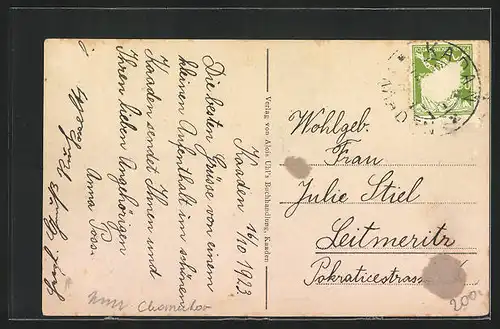 Kaaden 16/10 1923
Die besten Grüsse von einem
kleinen Aufenthalt im schönen
Kaaden sendet Ihnen und
Ihren lieben Angehörigen
Anna Poss.
Verlag von Alois Uhl's Buchhandlung, Kaaden
Wohlgeb.
Frau
Julie Stiel
Leitmeritz
Pokraticestrass
Chomutov
200